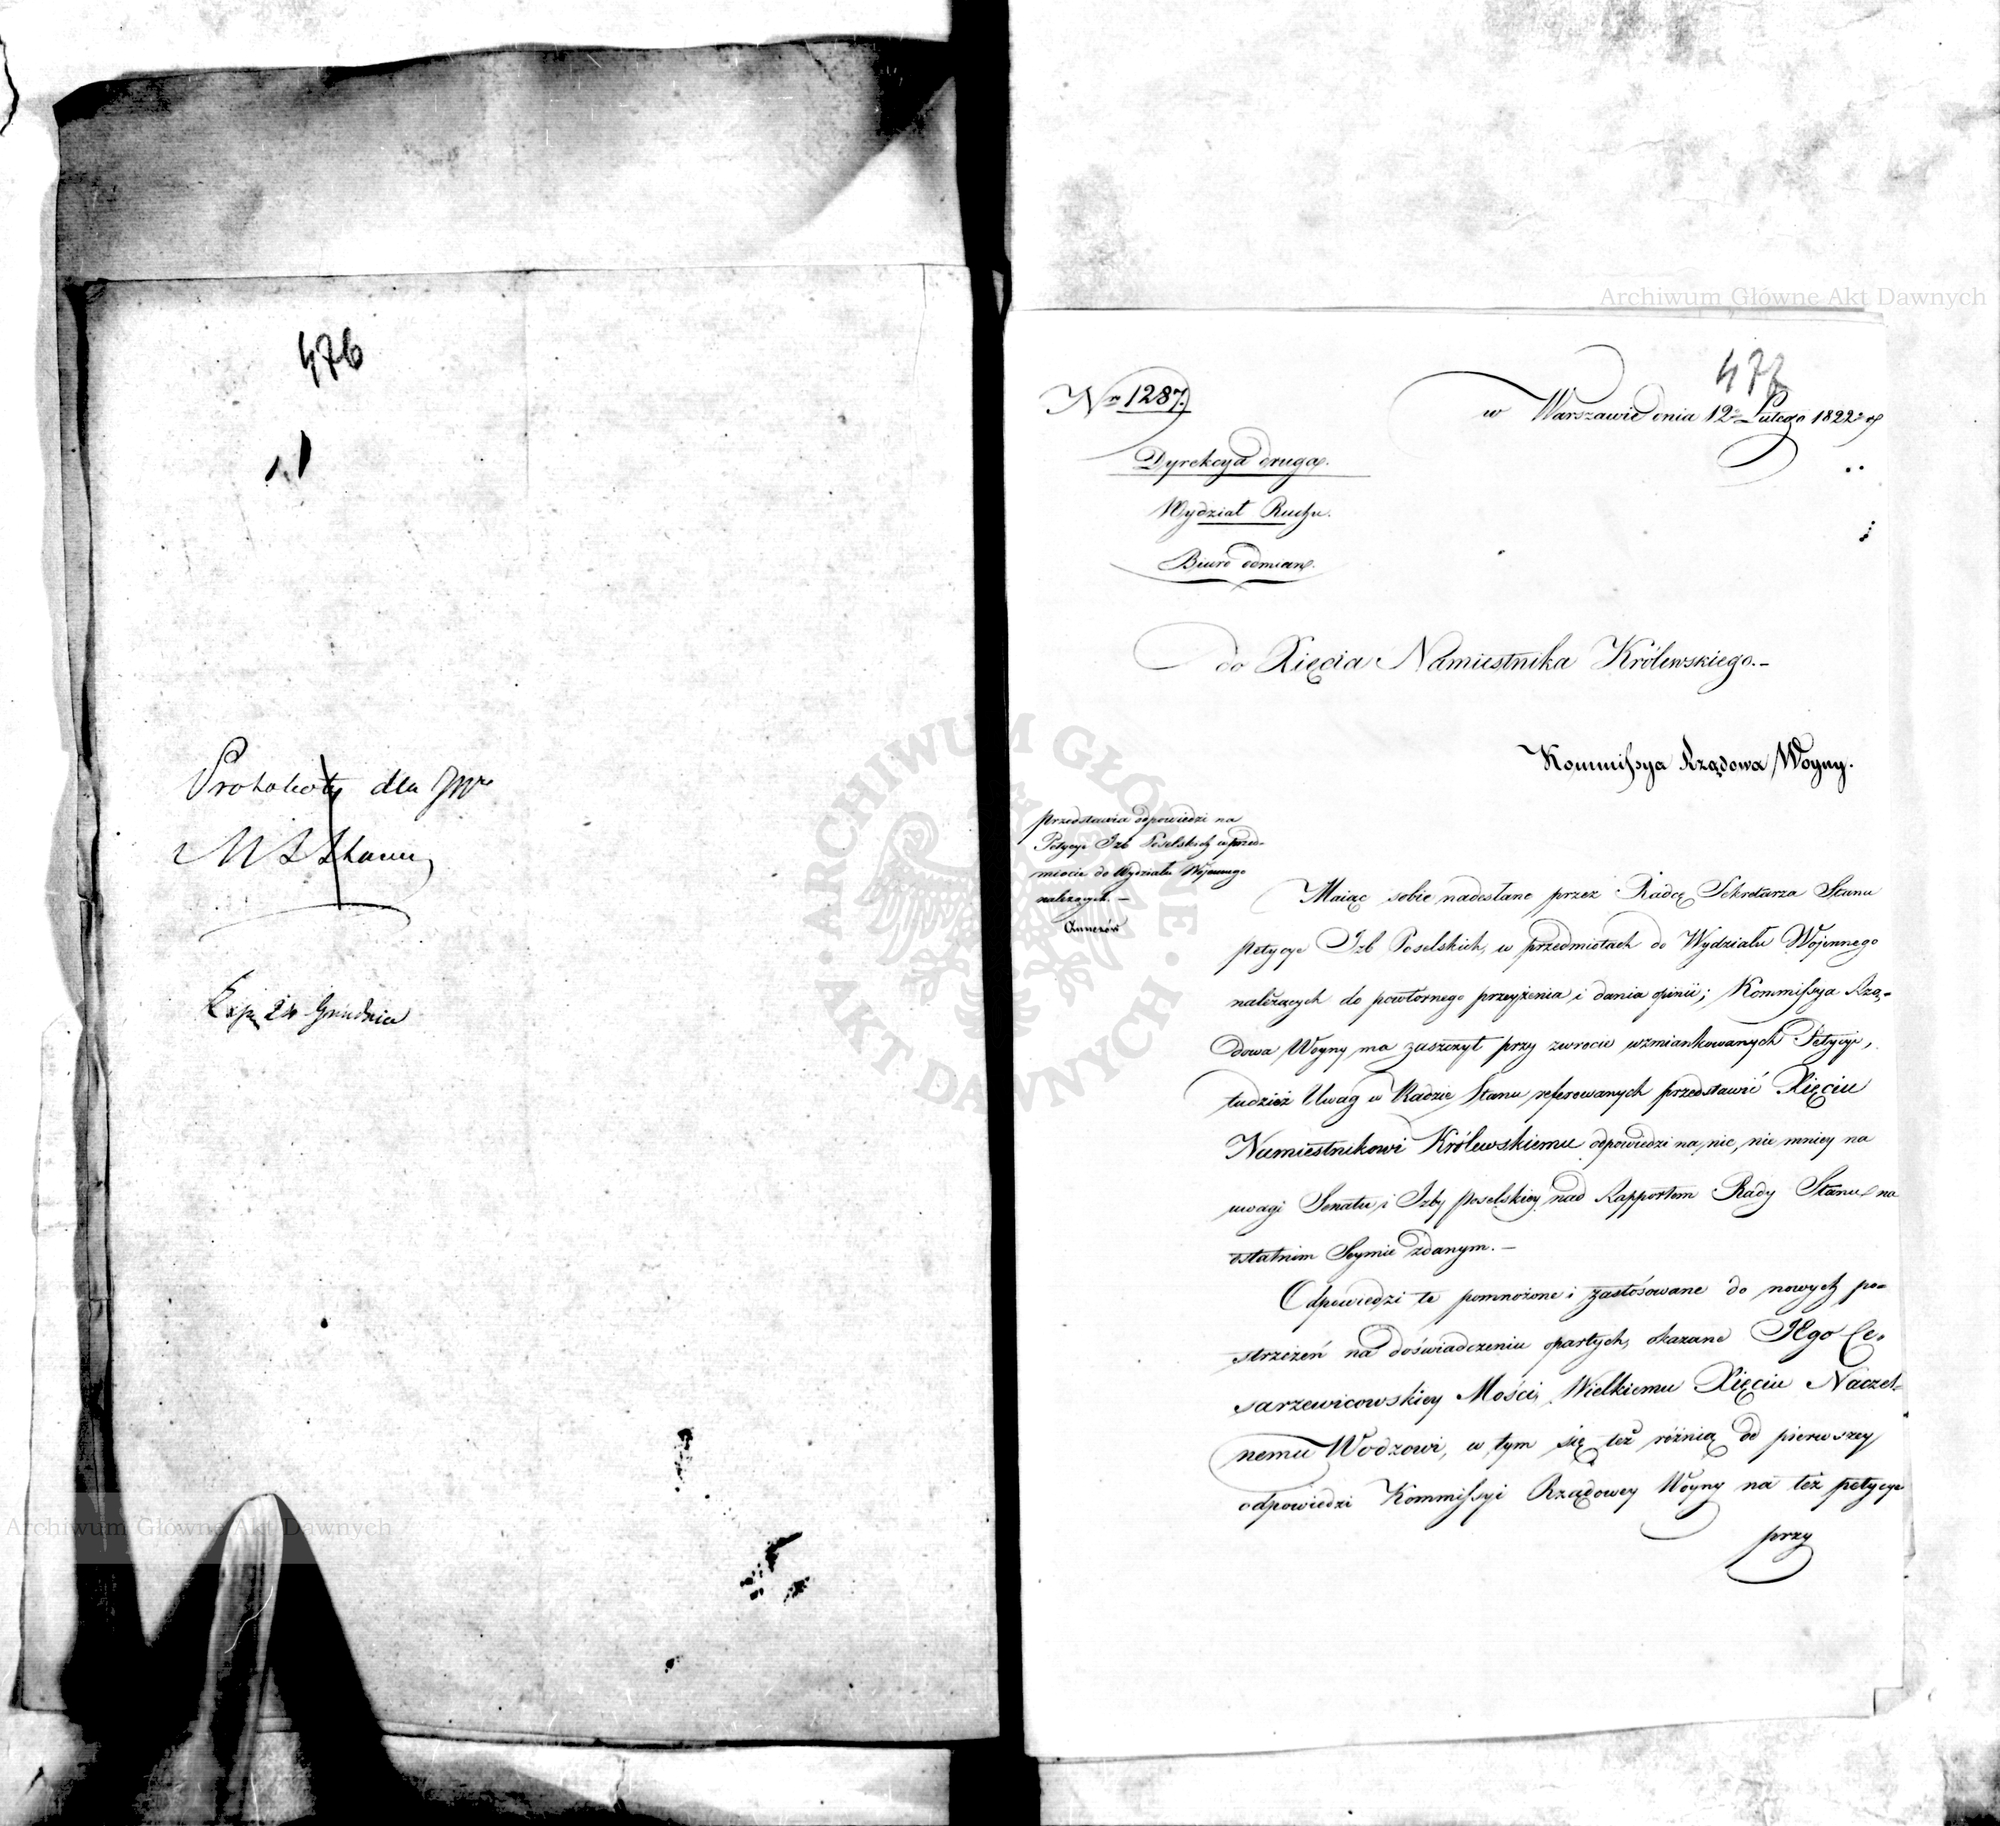 476
Protokoły dla JW
Exp. 24 Grudnia
477
Nr 1287.
w Warszawie dnia 12 Lutego 1822 r
Dyrekcya druga.
Wydział Ruchu.
Biuro odmian.
do Xięcia Namiestnika Królewskiego.-
Kommissya Rządowa Woyny.
przedstawia odpowiedzi na
Petycye Izb Poselskich w przed-
miocie do Wydziału Wojennego
należących. -
Annexów
Maiąc sobie nadesłane przez Radcę Sekretarza Stanu
petycye Izb Poselskich, w przedmiotach do Wydziału Wojennego
należących do powtornego przeyżenia i dania opinii; Kommissya Rzą-
dowa Woyny ma zaszczyt przy zwrocie wzmiankowanych Petycyi,
tudzież Uwag w Radzie Stanu referowanych przedstawić Xięciu
Namiestnikowi Królewskiemu odpowiedzi na nie, nie mniey na
uwagi Senatu i Izby Poselskiey nad Rapportem Rady Stanu na
ostatnim Seymie zdanym. -
Odpowiedzi te pomnożone i zastósowane do nowych po-
strzeżeń na doświadczeniu opartych, okazane JEgo Ce-
sarzewicowskiey Mości, Wielkiemu Xięciu Naczel-
nemu Wodzowi, w tym się też różnią od pierwszey
odpowiedzi Kommissyi Rządowey Woyny na też petycye
przy
Archiwum Główne Akt Dawnych
Archiwum Główne Akt Dawnych
ARCHIWUM GŁÓWNE AKT DAWNYCH